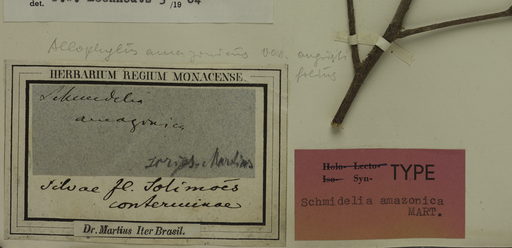 det. 3 /19 84
Allophylus amazonicus var. angusti
folius
HERBARIUM REGIUM MONACENSE.
Schmidelia
amazonica
scrips. Martius
Silvae fl. Solimoës
conterminae
Dr. Martius Iter Brasil.
Holo- Lecto- TYPE
Iso- Syn-
Schmidelia amazonica
MART.